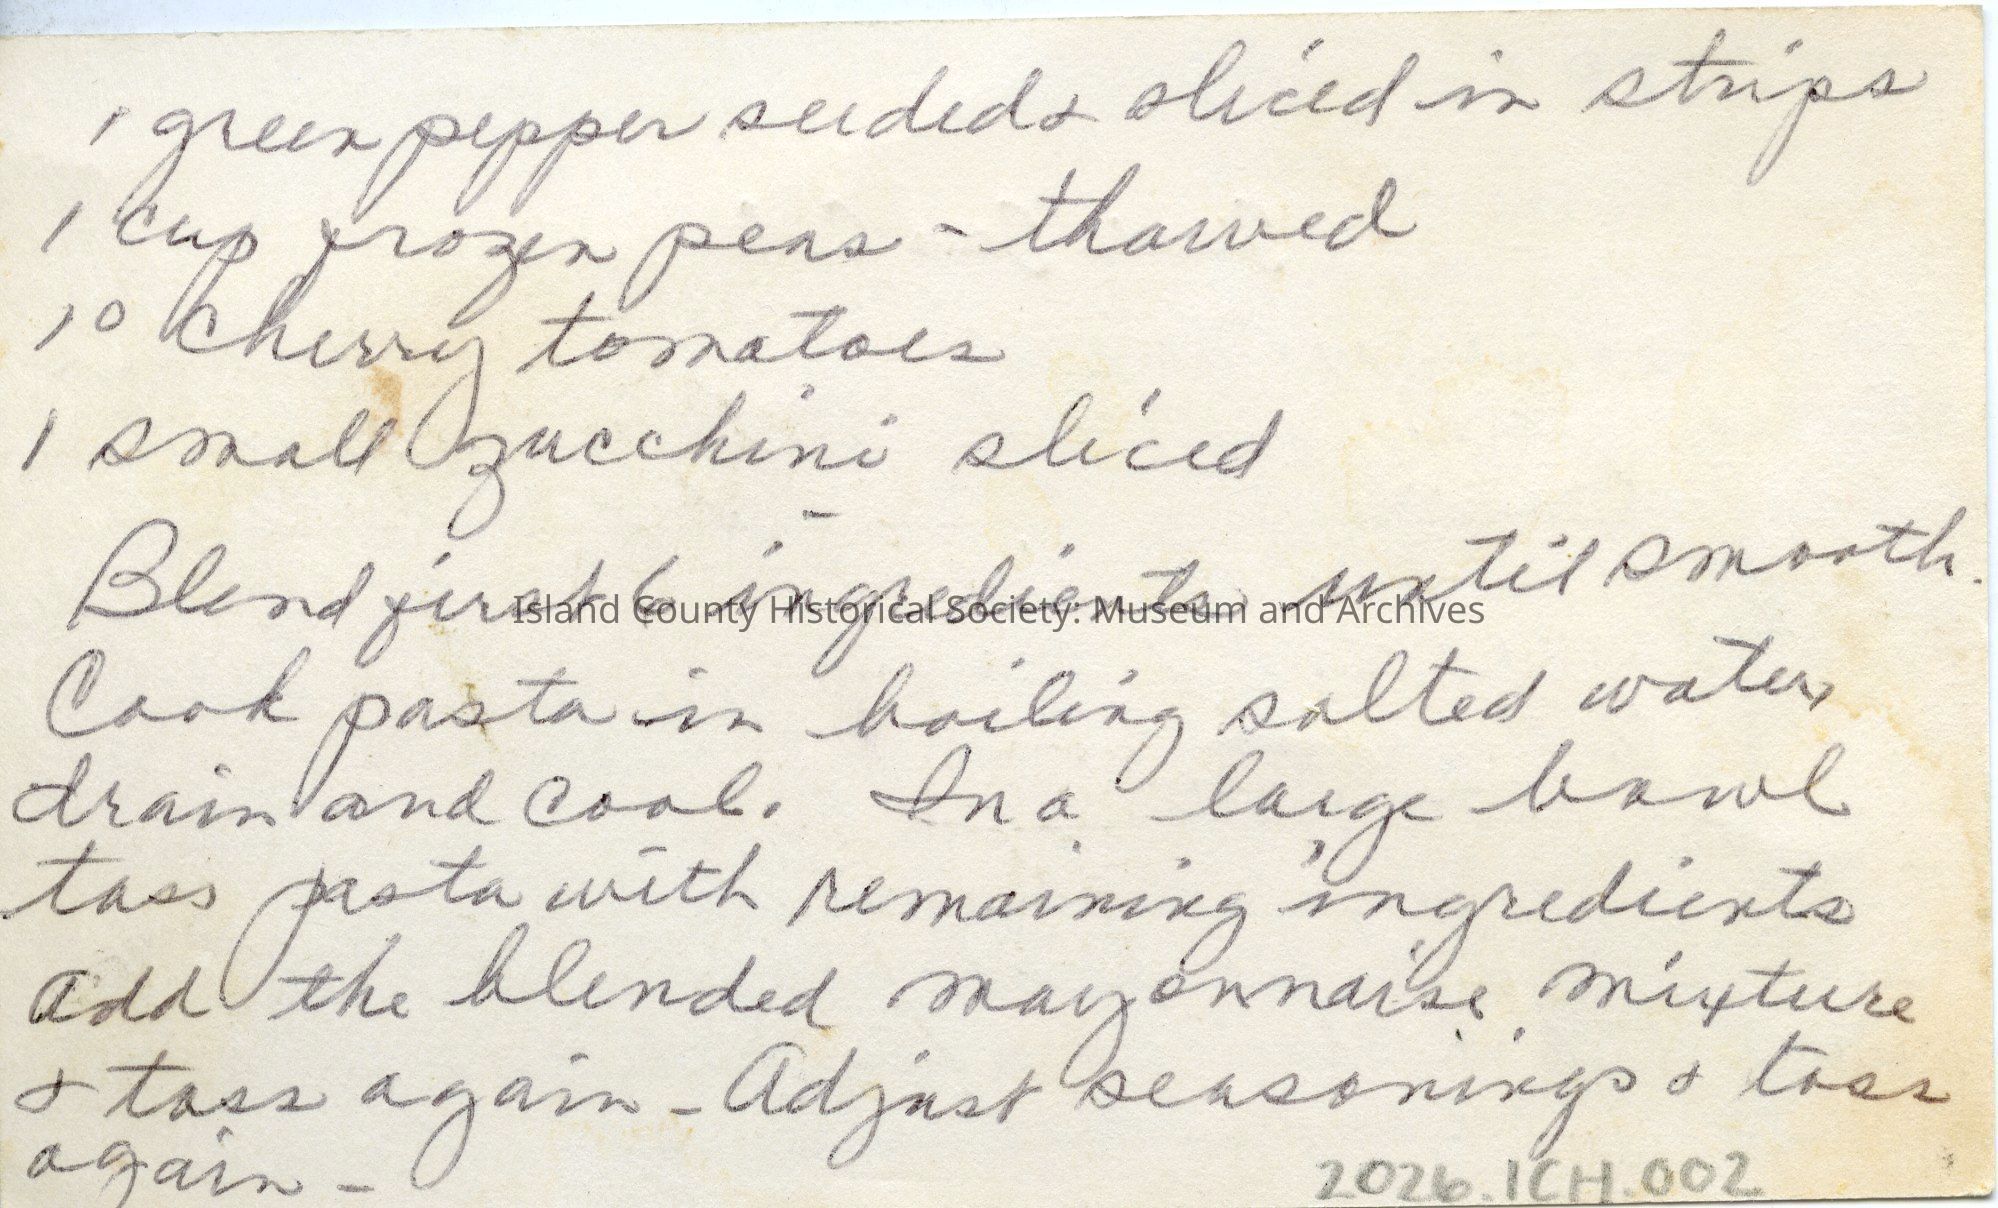 1 green pepper seeded & sliced in strips
1 cup frozen peas - thawed
10 cherry tomatoes
1 small zucchini sliced
-
Blend first 6 ingredients until smooth.
Island County Historical Society: Museum and Archives
Cook pasta in boiling salted water,
drain and cool. In a large bowl
toss pasta with remaining ingredients
add the blended mayonnaise mixture
& toss again - Adjust seasonings & toss
again -
2026.ICH.002